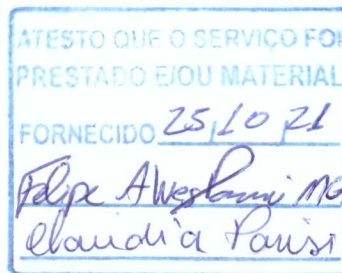 ATESTO QUE O SERVIÇO FOI
PRESTADO E/OU MATERIAL
FORNECIDO 25/10/21
Felipe MG
Claudia Parisi